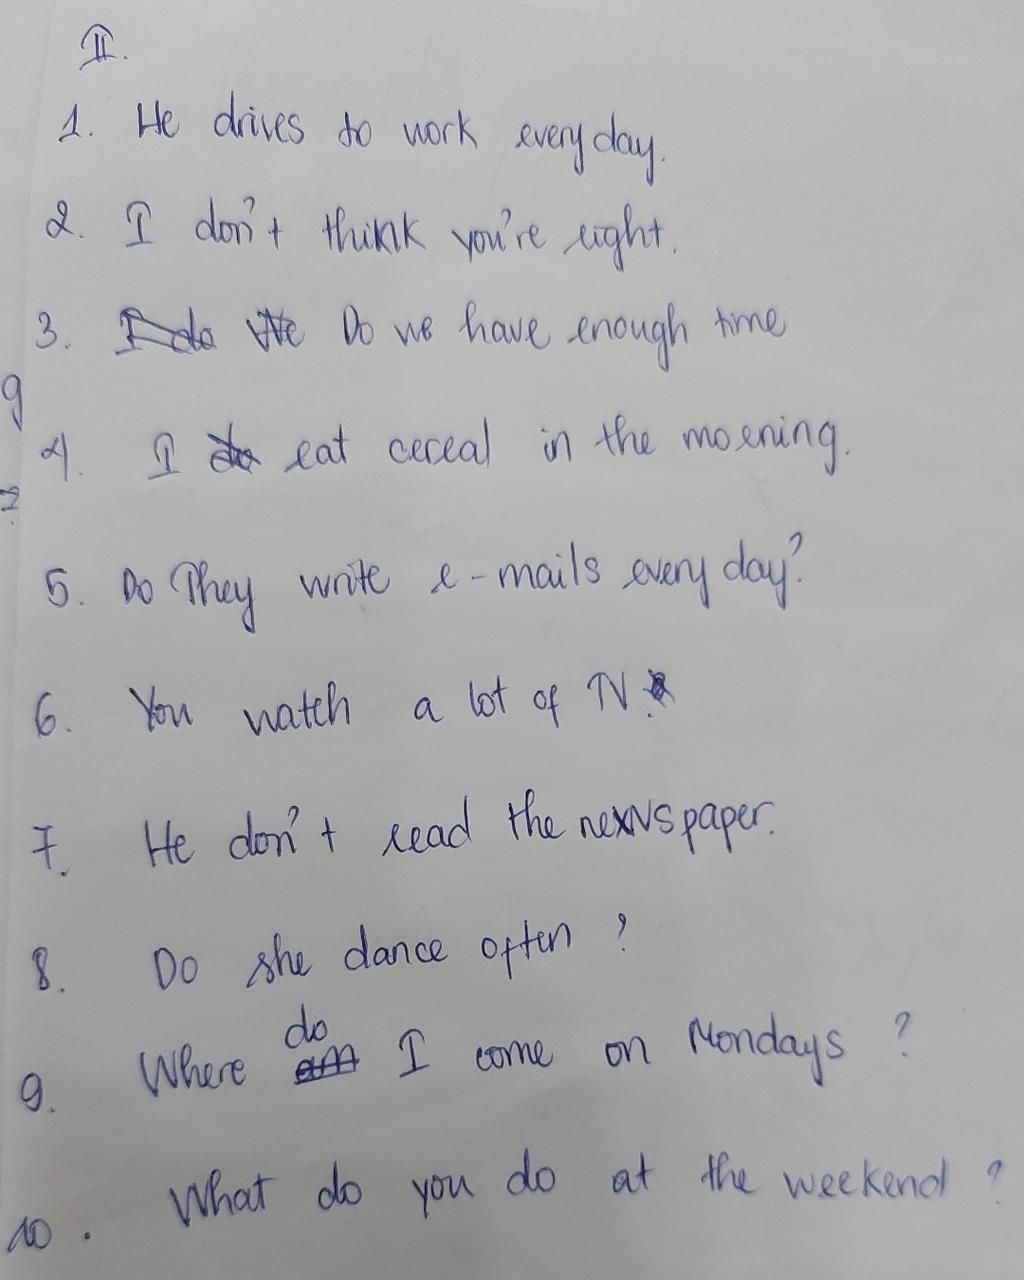 II.
1. He drives to work every day.
2. I don't think you're right.
3. Do we have enough time
4. I eat cereal in the morning.
5. Do They write e-mails every day?
6. You watch a lot of TV.
7. He don't read the newspaper.
8. Do she dance often ?
9. Where do I come on Mondays ?
10. What do you do at the weekend ?